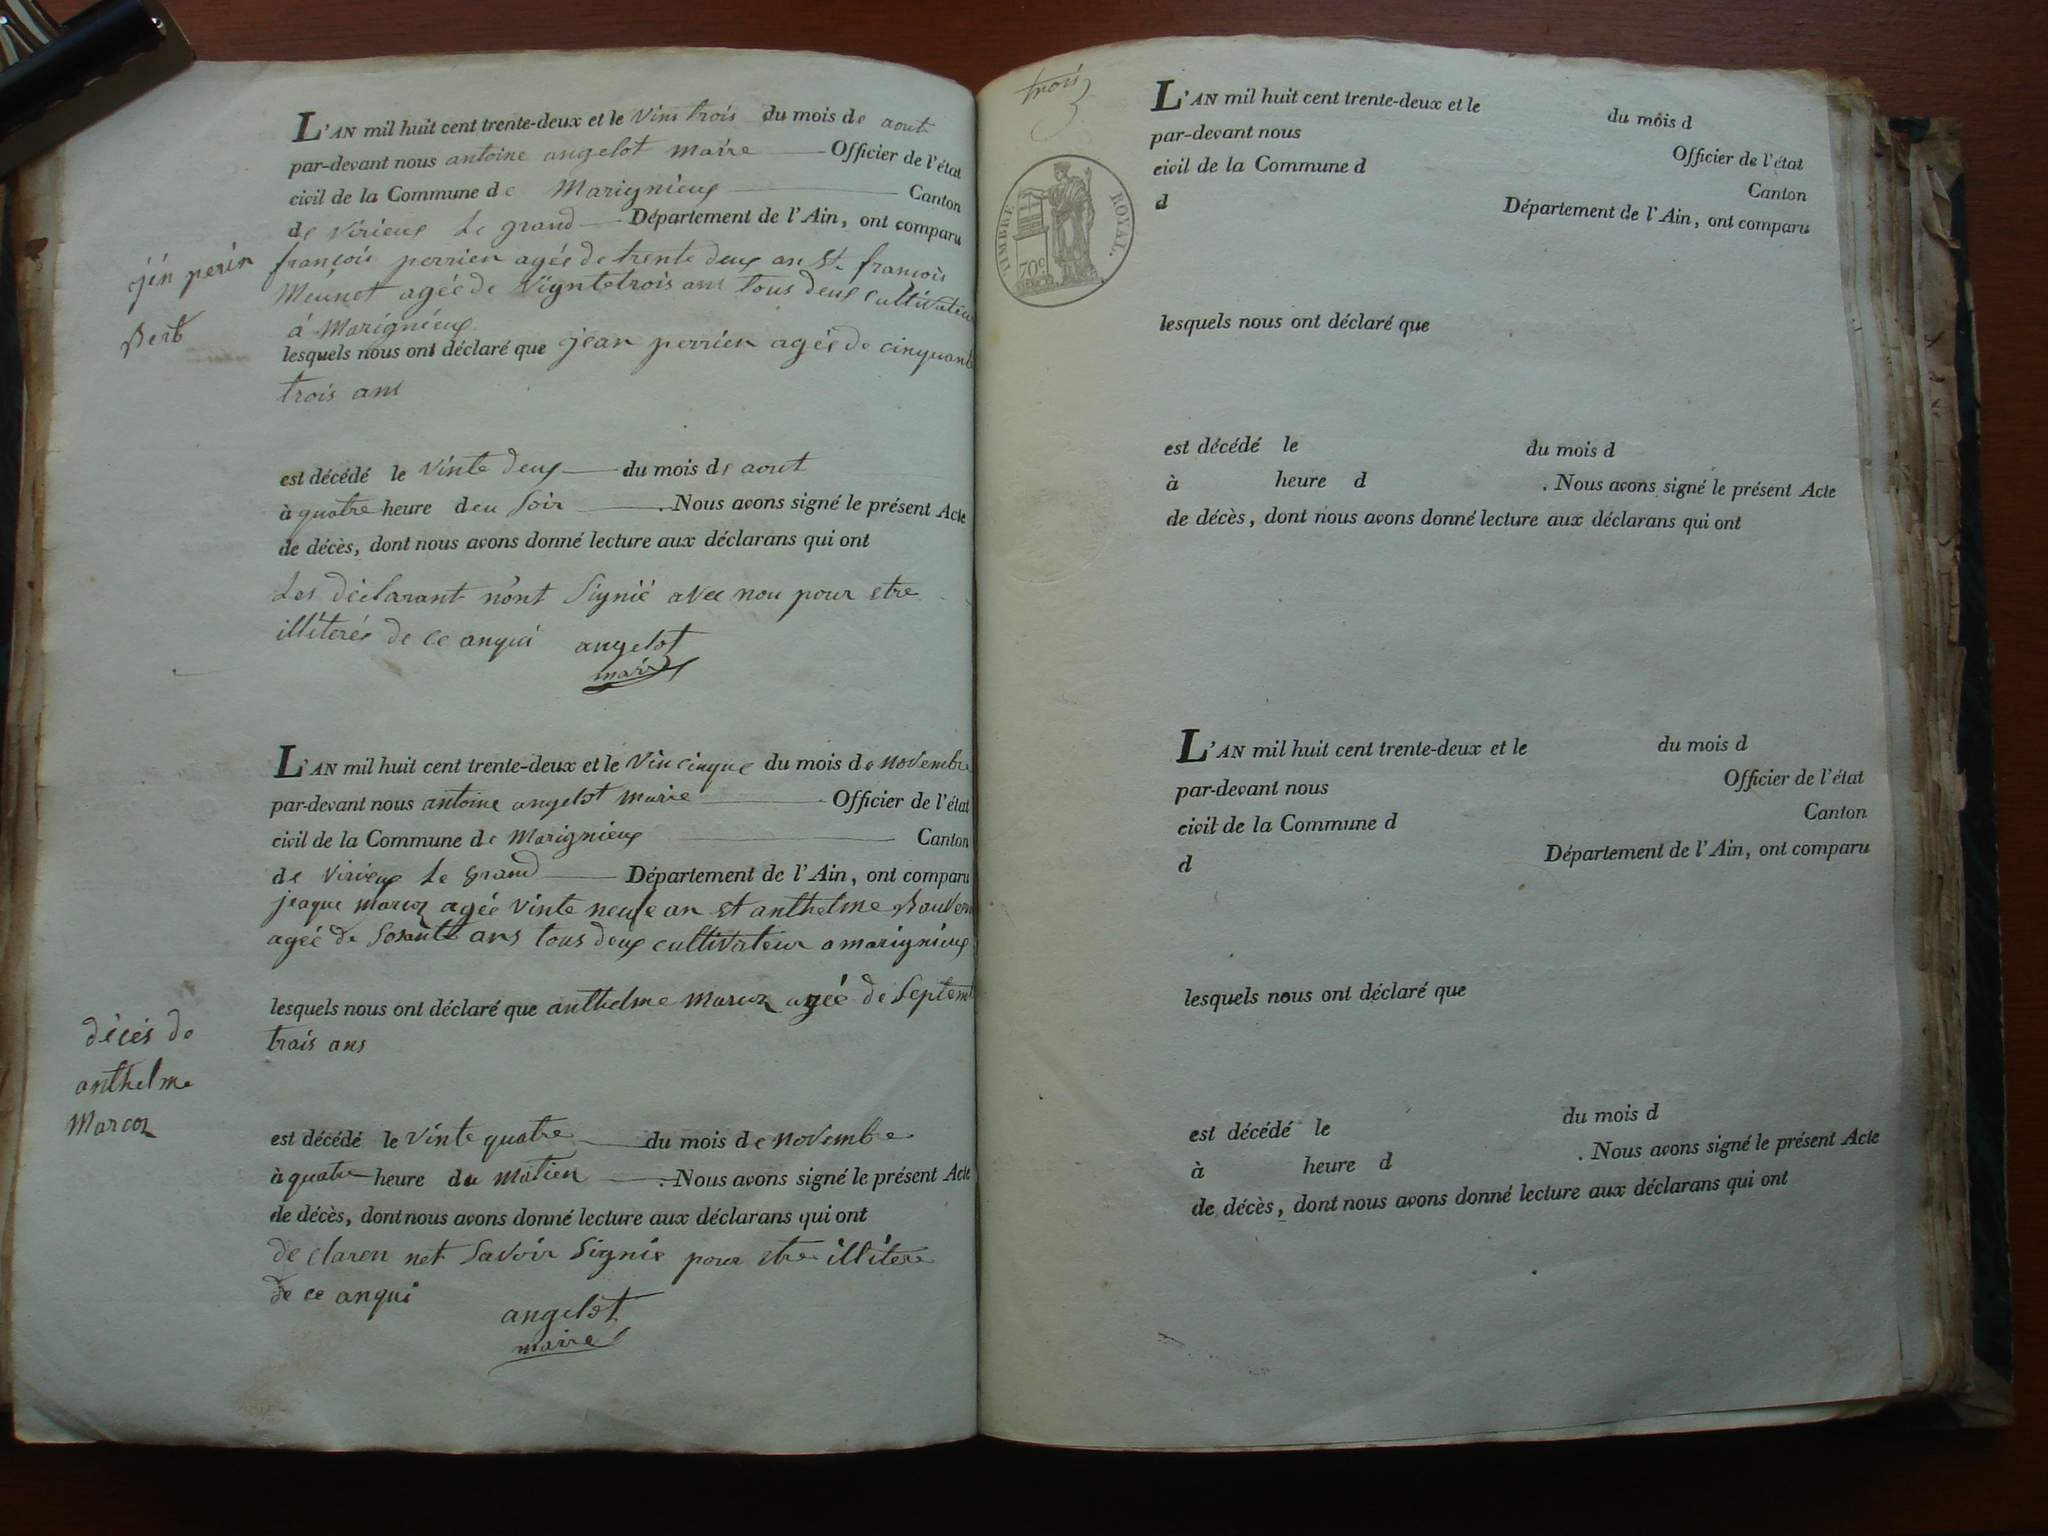 L'AN mil huit cent trente-deux et le vint trois du mois de aout
par-devant nous antoine angelot maire Officier de l'état
civil de la Commune de Marignieux Canton
de virieux Le grand Département de l'Ain, ont comparu
françois perrien agée de trente deux an st françois
Meunet agée de vigntetrois ans tous deux cultivateur
à Marignieux
lesquels nous ont déclaré que jean perrien agée de cinquante
trois ans
jén perin
est décédé le vinte deux du mois de aout
à quatre heure deu soir . Nous avons signé le présent Acte
de décès, dont nous avons donné lecture aux déclarans qui ont
Les déclarant n'ont Signié avec nou pour etre
illiterés de ce anqui angelot
maire
L'AN mil huit cent trente-deux et le vin cinque du mois de novembre
par-devant nous antoine angelot marie Officier de l'état
civil de la Commune de Marignieux Canton
de virieux Le grand Département de l'Ain, ont comparu
jeaque marcoz agée vinte neufe an st anthelme
agée de Sosante ans tous deux cultivateur a marignieux
lesquels nous ont déclaré que anthelme marcoz agée de Septent
trais ans
décés de
anthelme
Marcoz
est décédé le vinte quatre du mois de novembre
à quatre heure du matien . Nous avons signé le présent Acte
de décès, dont nous avons donné lecture aux déclarans qui ont
de claren net savoir Signie pour etre illitere
de ce anqui
angelot
maire
trois
TIMBRE ROYAL.
70c
L'AN mil huit cent trente-deux et le du mois d
par-devant nous Officier de l'état
civil de la Commune d Canton
d Département de l'Ain, ont comparu
lesquels nous ont déclaré que
est décédé le du mois d
à heure d . Nous avons signé le présent Acte
de décès, dont nous avons donné lecture aux déclarans qui ont
L'AN mil huit cent trente-deux et le du mois d
par-devant nous Officier de l'état
civil de la Commune d Canton
d Département de l'Ain, ont comparu
lesquels nous ont déclaré que
est décédé le du mois d
à heure d . Nous avons signé le présent Acte
de décès, dont nous avons donné lecture aux déclarans qui ont